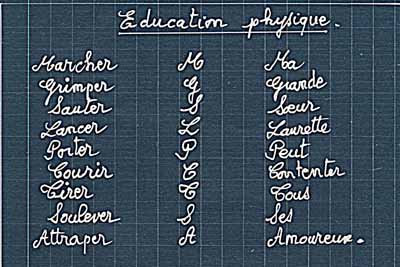 Education physique.
Marcher M Ma
Grimper G Grande
Sauter S Sœur
Lancer L Laurette
Porter P Peut
Courir C Contenter
Tirer T Tous
Soulever S Ses
Attraper A Amoureux.